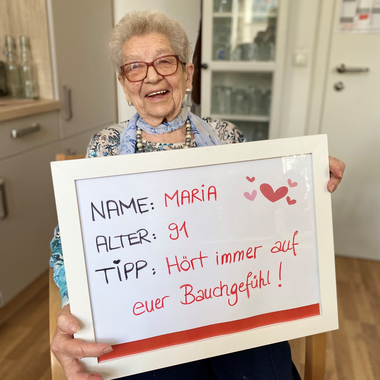 NAME: MARIA
ALTER: 91
TIPP: Hört immer auf
euer Bauchgefühl!